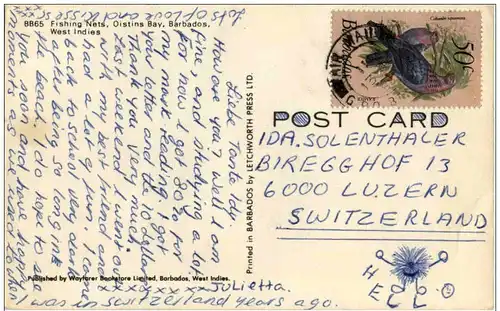 8B65 Fishing Nets, Oistins Bay, Barbados,
West Indies
Lots of Love and kisses
Liebe Tante Idy.
How are you? Well I am
fine and studying a lot
for now I got 80% for
my mark reading. I got
your letter and the 10 dollars
Thank you Very much.
Last weekend I went out
with my best friend and
had a lot of fun. I came
back to school very dark
after being so long in
the beach. I do hope to see
you soon and have happy
moments as we used to when
I was in switzerland years ago.
xxxxxxxx Julietta.
Published by Wayfarer Bookstore Limited, Barbados, West Indies.
Printed in BARBADOS by LETCHWORTH PRESS LTD.
50c
Barbados
POST CARD
IDA. SOLENTHALER
BIREGGHOF 13
6000 LUZERN
SWITZERLAND
HELLO